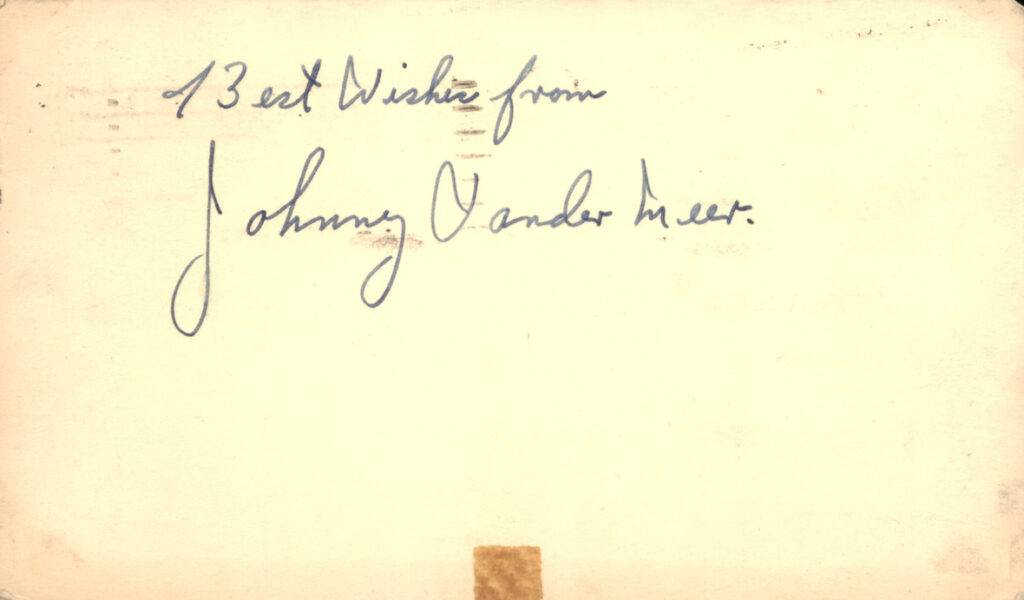 Best Wishes from
Johnny Vander Meer.